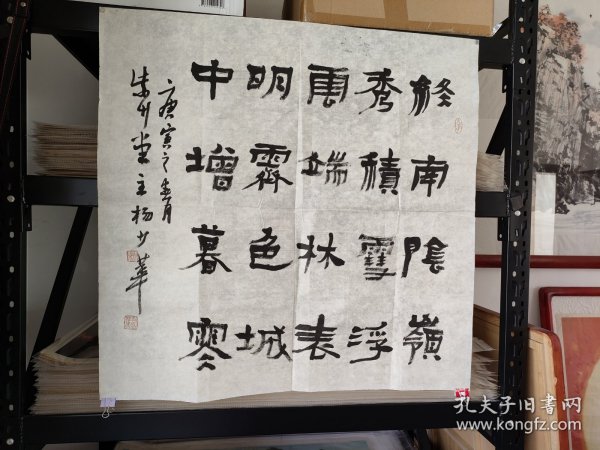 終南陰嶺
秀積雪浮
雲端林表
明霽色城
中增暮寒
庚寅之春月
朱竹堂主楊少華
孔夫子旧书网
www.kongfz.com